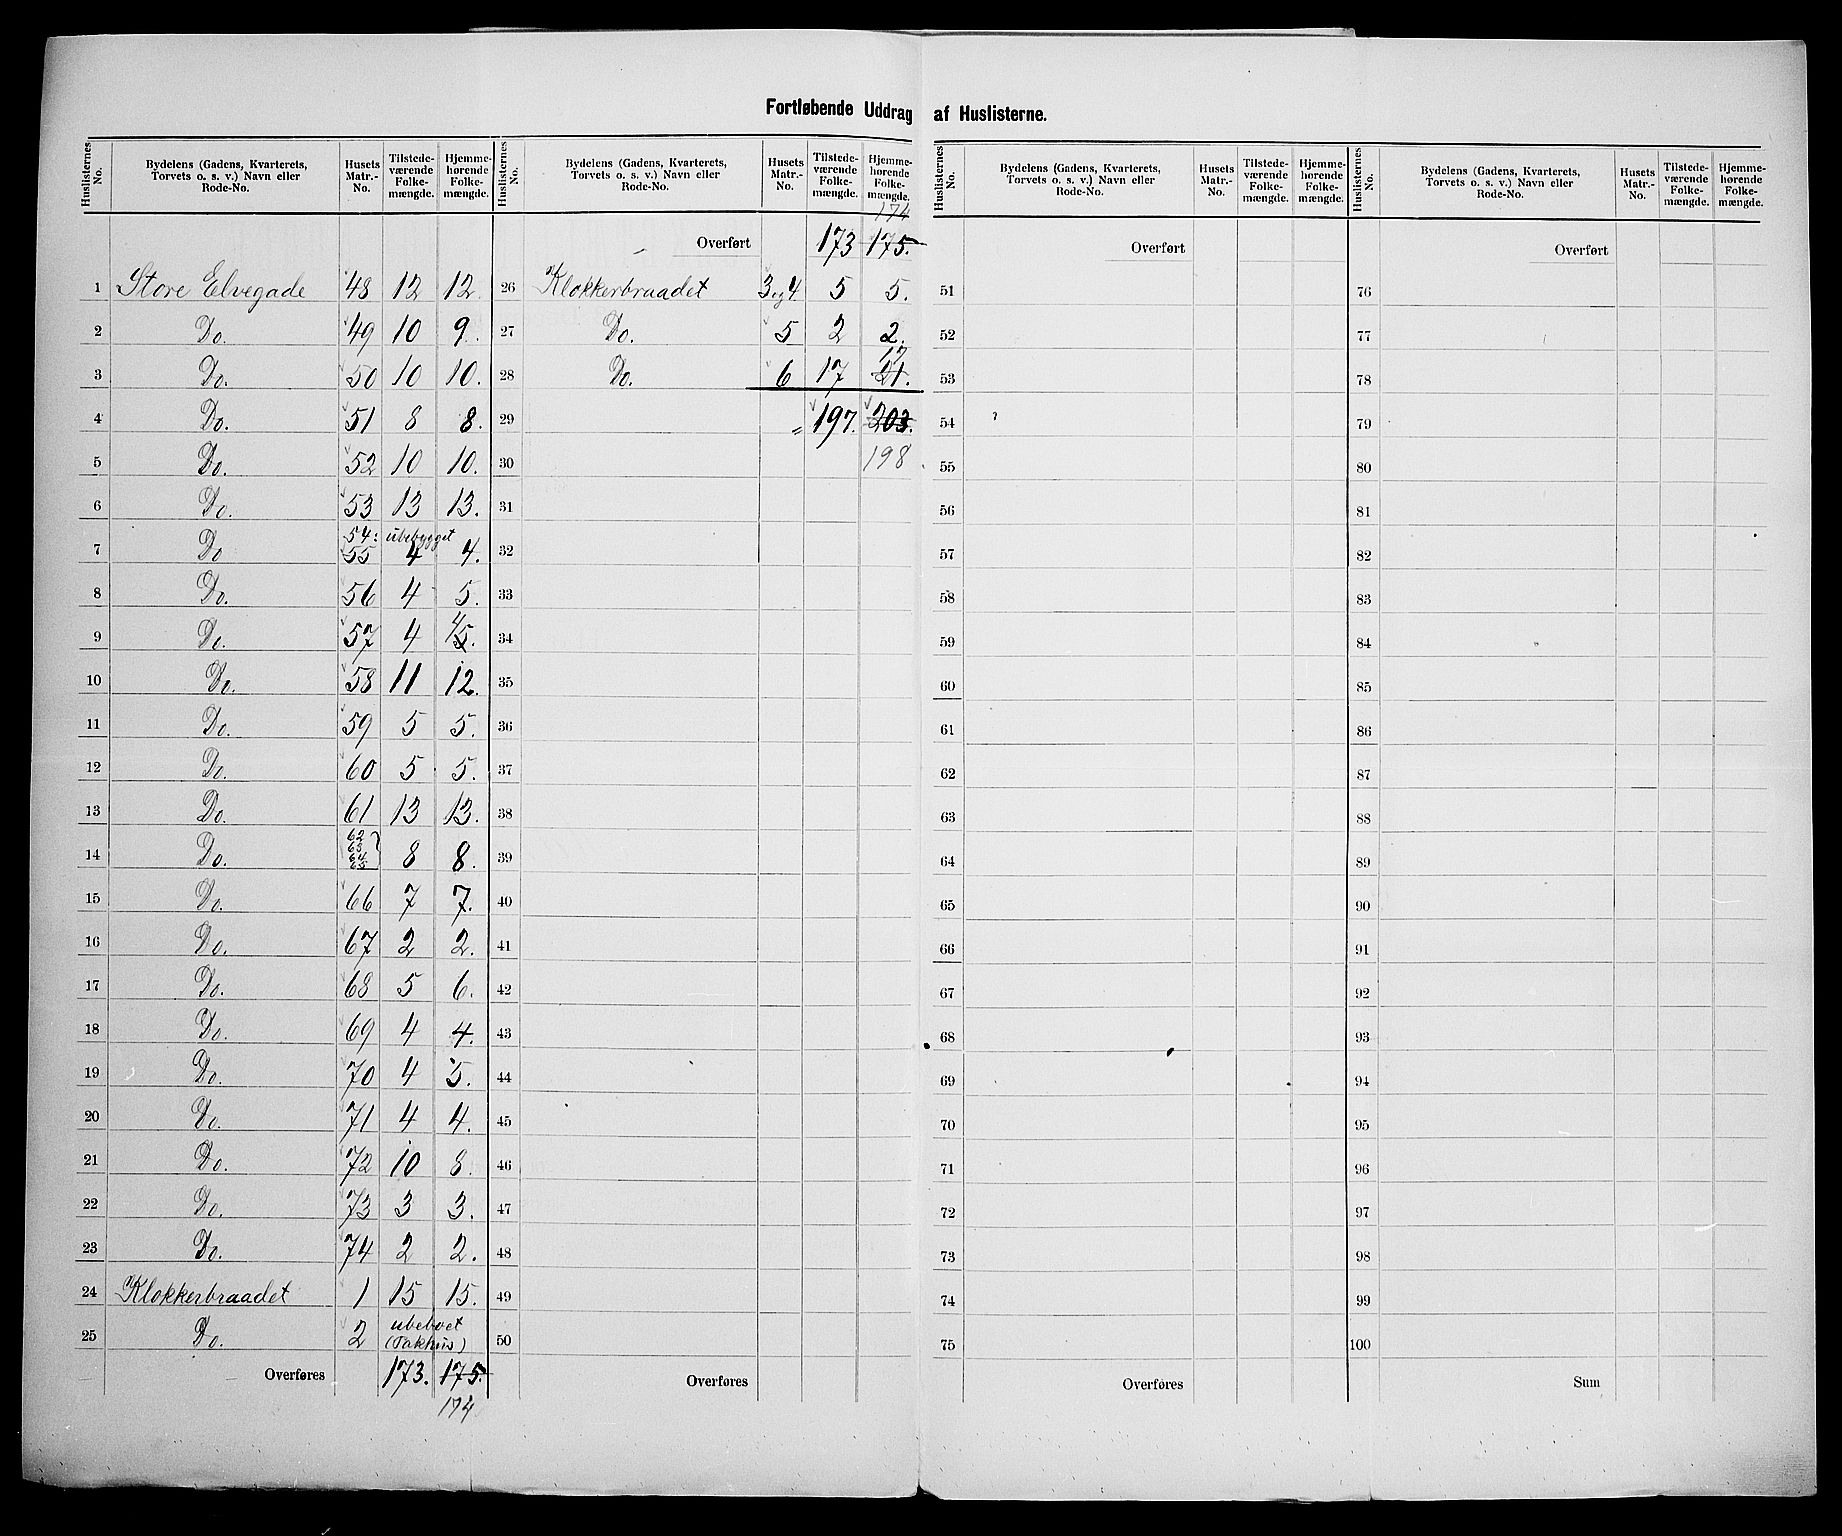 Fortløbende Uddrag af Huslisterne.
Huslisternes No. | Bydelens (Gadens, Kvarterets, Torvets o. s. v.) Navn eller Rode-No. | Husets Matr.-No. | Tilstedeværende Folkemængde. | Hjemmehørende Folkemængde.
1 Store Elvegade 48 12 12.
2 Do. 49 10 9.
3 Do. 50 10 10.
4 Do. 51 8 8.
5 Do. 52 10 10.
6 Do. 53 13 13.
54: ubebygget
7 Do 55 4 4.
8 Do. 56 4 5.
9 Do. 57 4 4/5.
10 Do. 58 11 12.
11 Do. 59 5 5.
12 Do. 60 5 5.
13 Do. 61 13 13.
14 Do. 62 63 64 65 8 8.
15 Do. 66 7 7.
16 Do. 67 2 2.
17 Do. 68 5 6.
18 Do. 69 4 4.
19 Do. 70 4 5.
20 Do. 71 4 4.
21 Do. 72 10 8.
22 Do. 73 3 3.
23 Do. 74 2 2.
24 Klokkerbraadet 1 15 15.
25 Do. 2 ubeboet (Pakhus)
Overføres 173. 175.
174
Huslisternes No. | Bydelens (Gadens, Kvarterets, Torvets o. s. v.) Navn eller Rode-No. | Husets Matr.-No. | Tilstedeværende Folkemængde. | Hjemmehørende Folkemængde.
174
Overført 173 175.
26 Klokkerbraadet 3 og 4 5 5.
27 Do. 5 2 2.
17
28 Do. 6 17 21.
29 " 197. 203.
30 198.
31
32
33
34
35
36
37
38
39
40
41
42
43
44
45
46
47
48
49
50
Overføres
Huslisternes No. | Bydelens (Gadens, Kvarterets, Torvets o. s. v.) Navn eller Rode-No. | Husets Matr.-No. | Tilstedeværende Folkemængde. | Hjemmehørende Folkemængde.
Overført
51
52
53
54
55
56
57
58
59
60
61
62
63
64
65
66
67
68
69
70
71
72
73
74
75
Overføres
Huslisternes No. | Bydelens (Gadens, Kvarterets, Torvets o. s. v.) Navn eller Rode-No. | Husets Matr.-No. | Tilstedeværende Folkemængde. | Hjemmehørende Folkemængde.
Overført
76
77
78
79
80
81
82
83
84
85
86
87
88
89
90
91
92
93
94
95
96
97
98
99
100
Sum